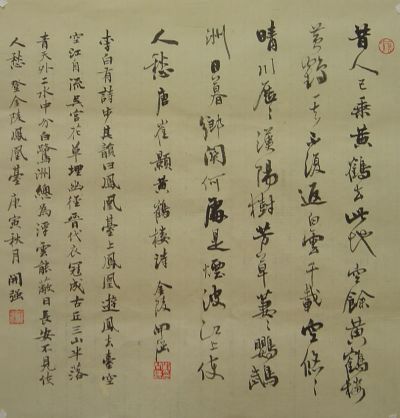 昔人已乘黄鶴去此地空餘黄鶴樓
黄鶴一去不復返白雲千載空悠々
晴川歷々漢陽樹芳草萋々鸚鵡
洲日暮鄉關何處是煙波江上使
人愁 唐崔顥黄鶴樓詩 金陵開强
李白有詩其韻曰鳳凰臺上鳳凰遊鳳去臺空
空江自流吳宮花草埋幽徑晉代衣冠成古丘三山半落
青天外二水中分白鷺洲總為浮雲能蔽日長安不見使
人愁 登金陵鳳凰臺 庚寅秋月 開强